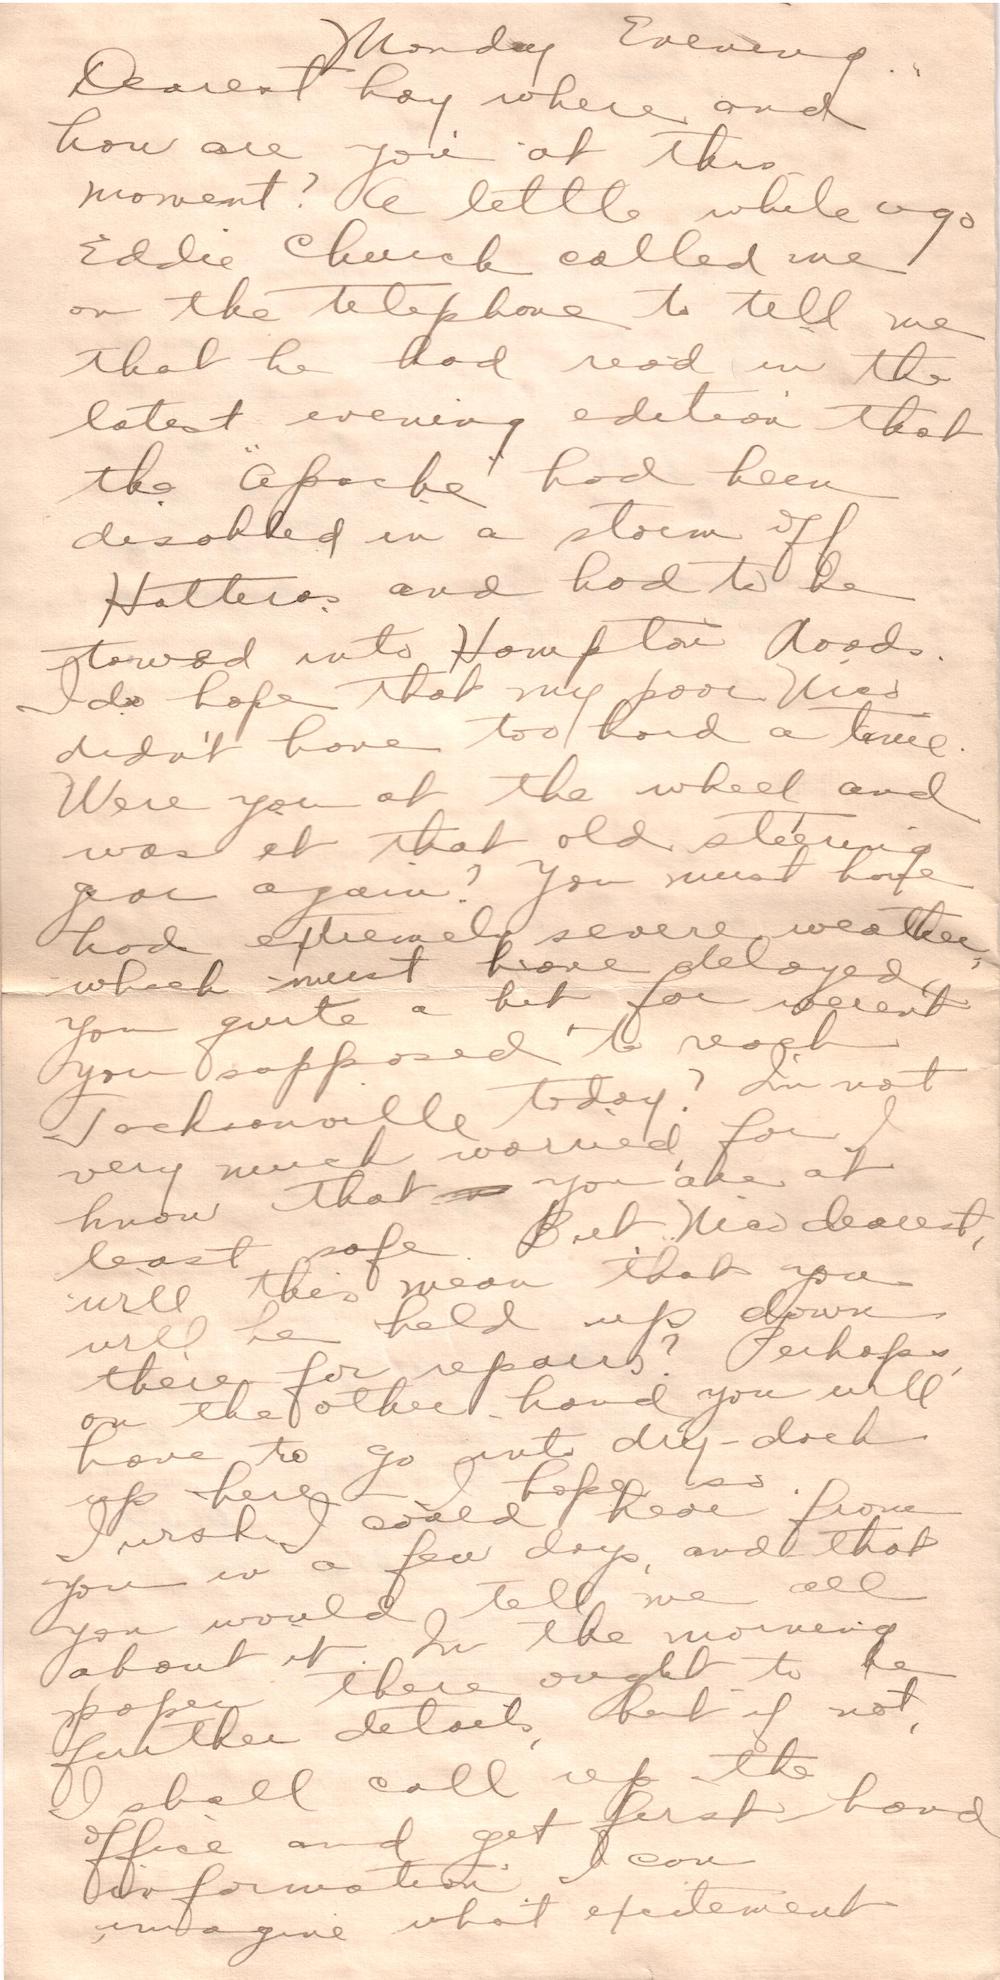 Monday Evening.
Dearest boy where and
how are you at this
moment? A little while ago
Eddie Church called me
on the telephone to tell me
that he had read in the
latest evening edition that
the "Apache" had been
disabled in a storm off
Hatteras and had to be
towed into Hampton Roads.
I do hope that my poor Nico
didn't have too hard a time.
Were you at the wheel and
was it that old steering
gear again? You must have
had extremely severe weather,
which must have delayed
you quite a bit for weren't
you supposed to reach
Jacksonville today? I'm not
very much worried, for I
know that you are at
least safe. But Nico dearest,
will this mean that you
will be held up down
there for repairs? Perhaps,
on the other hand you will
have to go into dry-dock
up here – I hope so.
I wish I could hear from
you in a few days, and that
you would tell me all
about it. In the morning
paper there ought to be
further details, but if not,
I shall call up the
office and get first hand
information. I can
imagine what excitement